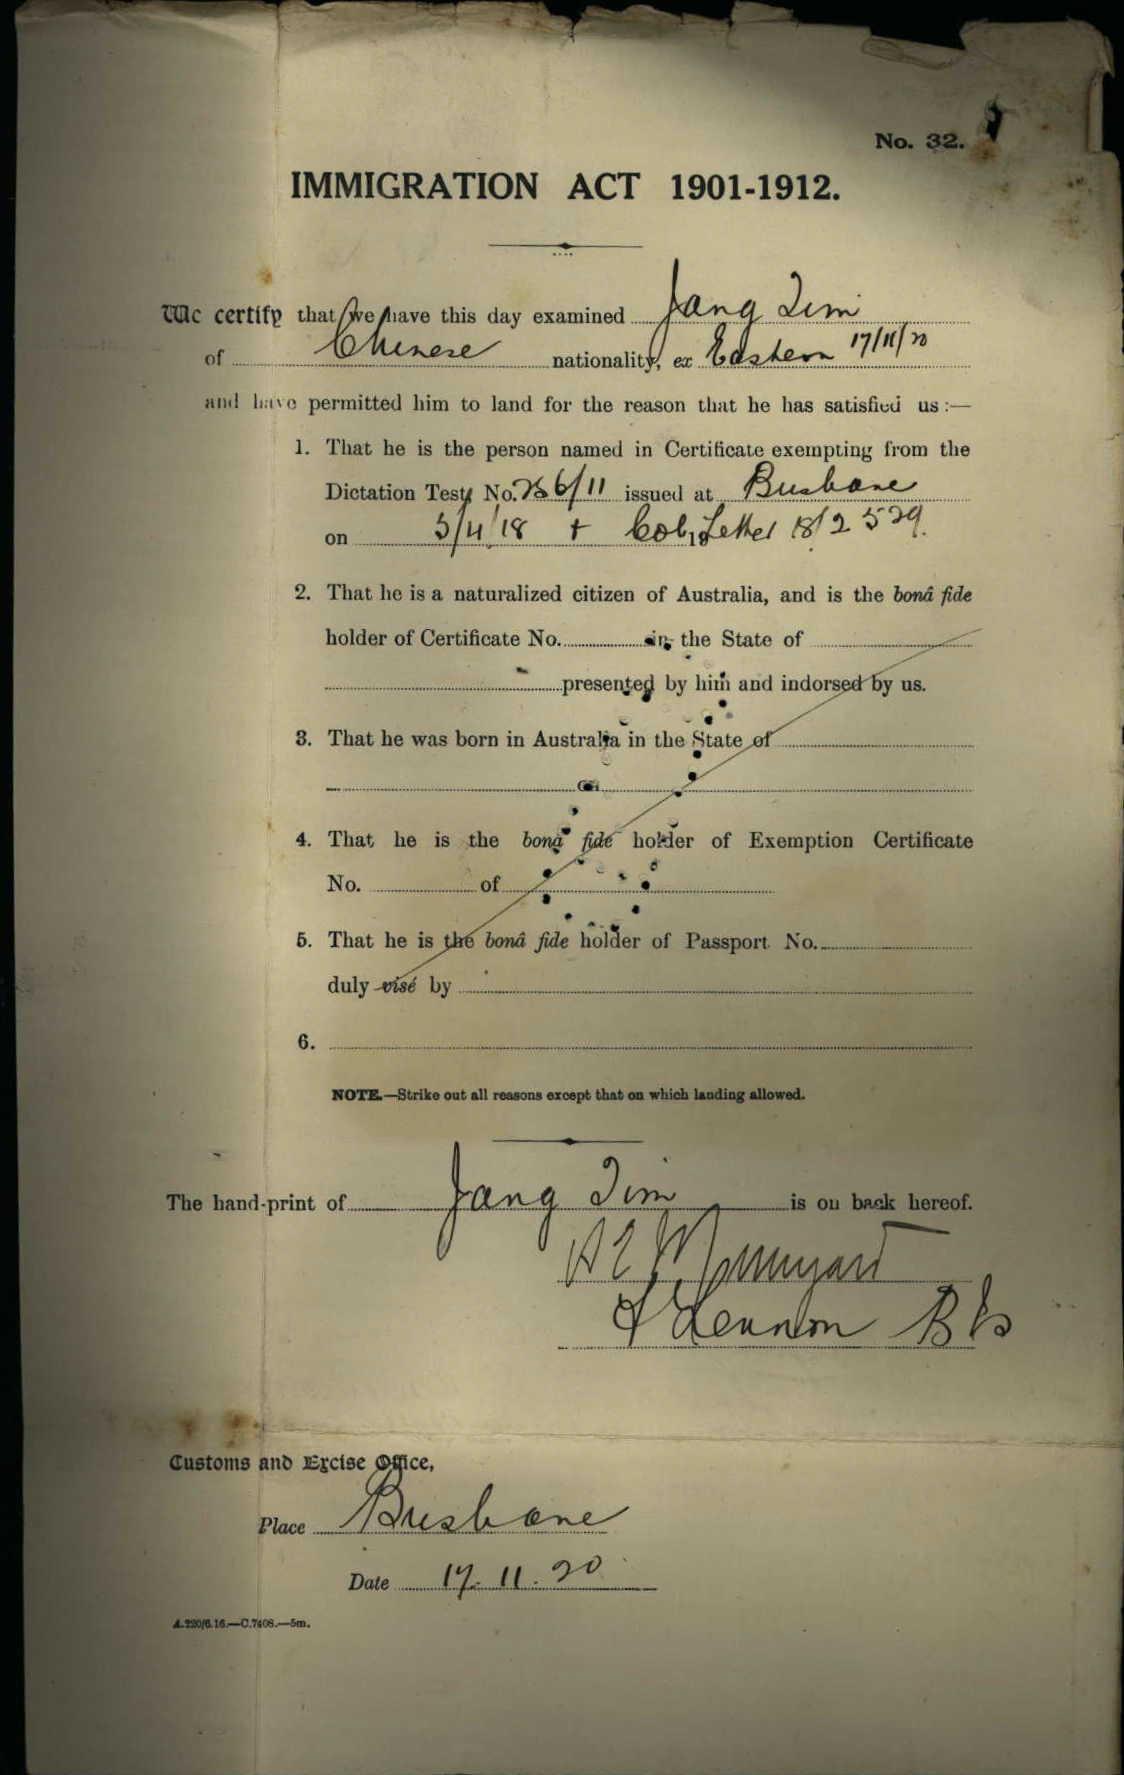 No. 32.
IMMIGRATION ACT 1901-1912.
We certify that we have this day examined Jang Tim
of Chinese nationality, ex Eastern 17/11/20
and have permitted him to land for the reason that he has satisfied us :—
1. That he is the person named in Certificate exempting from the
Dictation Test No. 256/11 issued at Brisbane
on 5/4/18 + Col. Letter 18/2529.
2. That he is a naturalized citizen of Australia, and is the bonâ fide
holder of Certificate No. in the State of
presented by him and indorsed by us.
3. That he was born in Australia in the State of
on
4. That he is the bonâ fide holder of Exemption Certificate
No. of
5. That he is the bonâ fide holder of Passport No.
duly visé by
6.
NOTE.—Strike out all reasons except that on which landing allowed.
The hand-print of Jang Tim is on back hereof.
Customs and Excise Office,
Place Brisbane
Date 17.11.20
A.220/6.16.—C.7408.—5m.